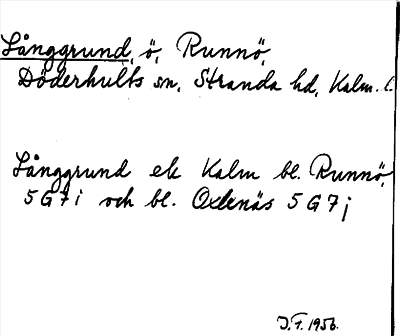 Långgrund, ö, Runnö,
Döderhults sn, Stranda hd, Kalm. l.
Långgrund ek Kalm bl. Runnö,
5 G 7 i och bl. Oxlenäs 5 G 7 j
J.F. 1956.